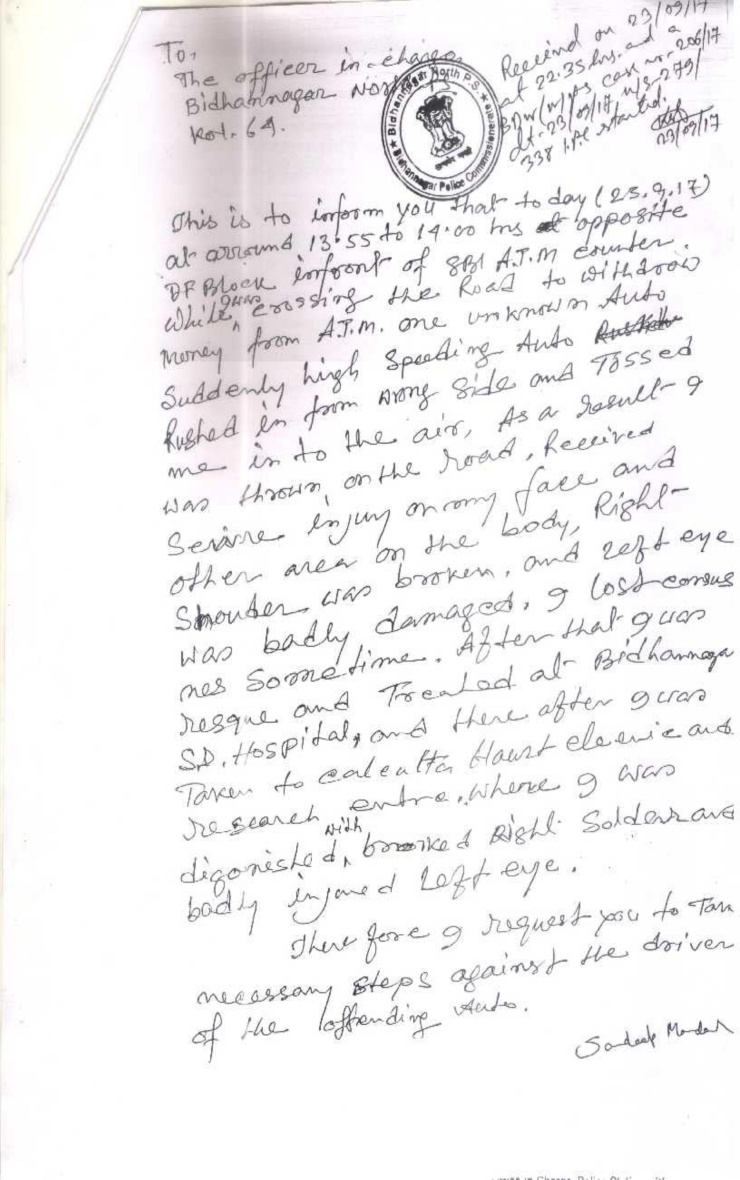 To,
The officer in-charge
Bidhannagar North P.S.
Kol. 64.
Received on 23/09/17
at 22.35 hrs. and a
BDN(N) P.S. case no- 206/17
dt- 23/09/17 u/s- 279/
338 I.P.C started.
23/09/17
★ Bidhannagar North P.S. ★
Bidhannagar Police Commissionerate
This is to inform you that to day (23.9.17)
at arround 13.55 to 14.00 hrs opposite
DF Block infront of SBI A.T.M counter.
While I was crossing the Road to withdraw
Money from A.T.M. one unknown Auto
Suddenly high Speeding Auto
Rushed in from wrong Side and Tossed
me in to the air, As a result I
was thrown on the road, Received
Serivre injury on my face and
other area on the body, Right
Shouder was broken, and Left eye
was badly damaged, I lost consus
nes Sometime. After that I was
resque and Treated at Bidhannaga
S.D. Hospital, and there after I was
Taken to calcutta Haurt clenic and
research entre. where I was
digonished with brooked Right Solder and
badly injured Left eye.
There fore I request you to Tak
necessary steps against the driver
of the offending Auto.
Sandeep Mandal